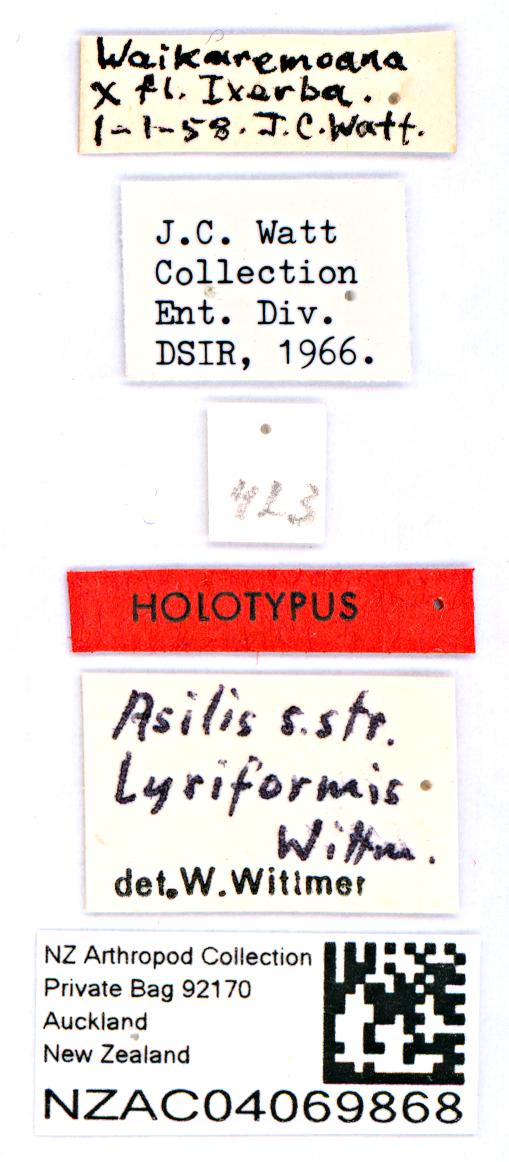 Waikaremoana
x fl. Ixerba.
1-1-58. J.C. Watt.
J.C. Watt
Collection
Ent. Div.
DSIR, 1966.
423
HOLOTYPUS
Asilis s.str.
Lyriformis
Wittm.
det. W. Wittmer
NZ Arthropod Collection
Private Bag 92170
Auckland
New Zealand
NZAC04069868